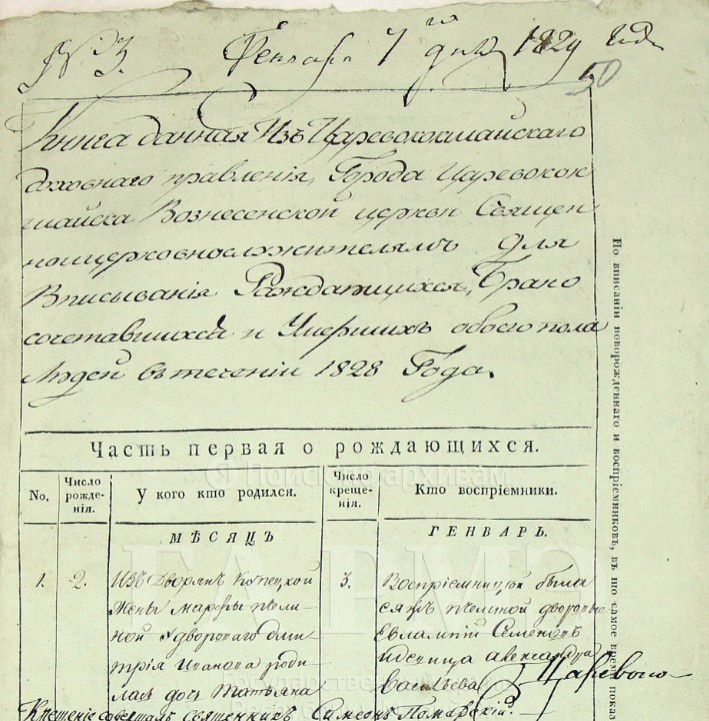 № 3. Генваря 7 го дня 1829 года
50
Книга данная Изъ Царевококшайскаго
духовнаго правленія, Города Царевокок
шайска Вознесенской церкви Священ
ноцерковнослужителямъ для
Вписыванія Раждающихся, Брако
сочетавшихся и Умершихъ обоего пола
Людей въ теченіи 1828 Года.
Часть первая о рождающихся.
No. Число рожде-нія. У кого кто родился. Число креще-нія. Кто воспріемники.
МѢСЯЦЪ ГЕНВАРЬ.
1. 2. Изъ Дворянъ
жены Марфы
ной у двороваго Дми
трія Иванова роди
лась дочь Татьяна
3. Воспріемницей была
дворовые
Евлампій Семеновъ
Александра
Васильева
Царевоко
Крещение совершалъ священникъ Симеонъ Помарскій.
Но вписаніи новорожденнаго и воспріемниковъ, въ то самое время показ
ГА РМЭ
© Поиск по архивам
Государственный